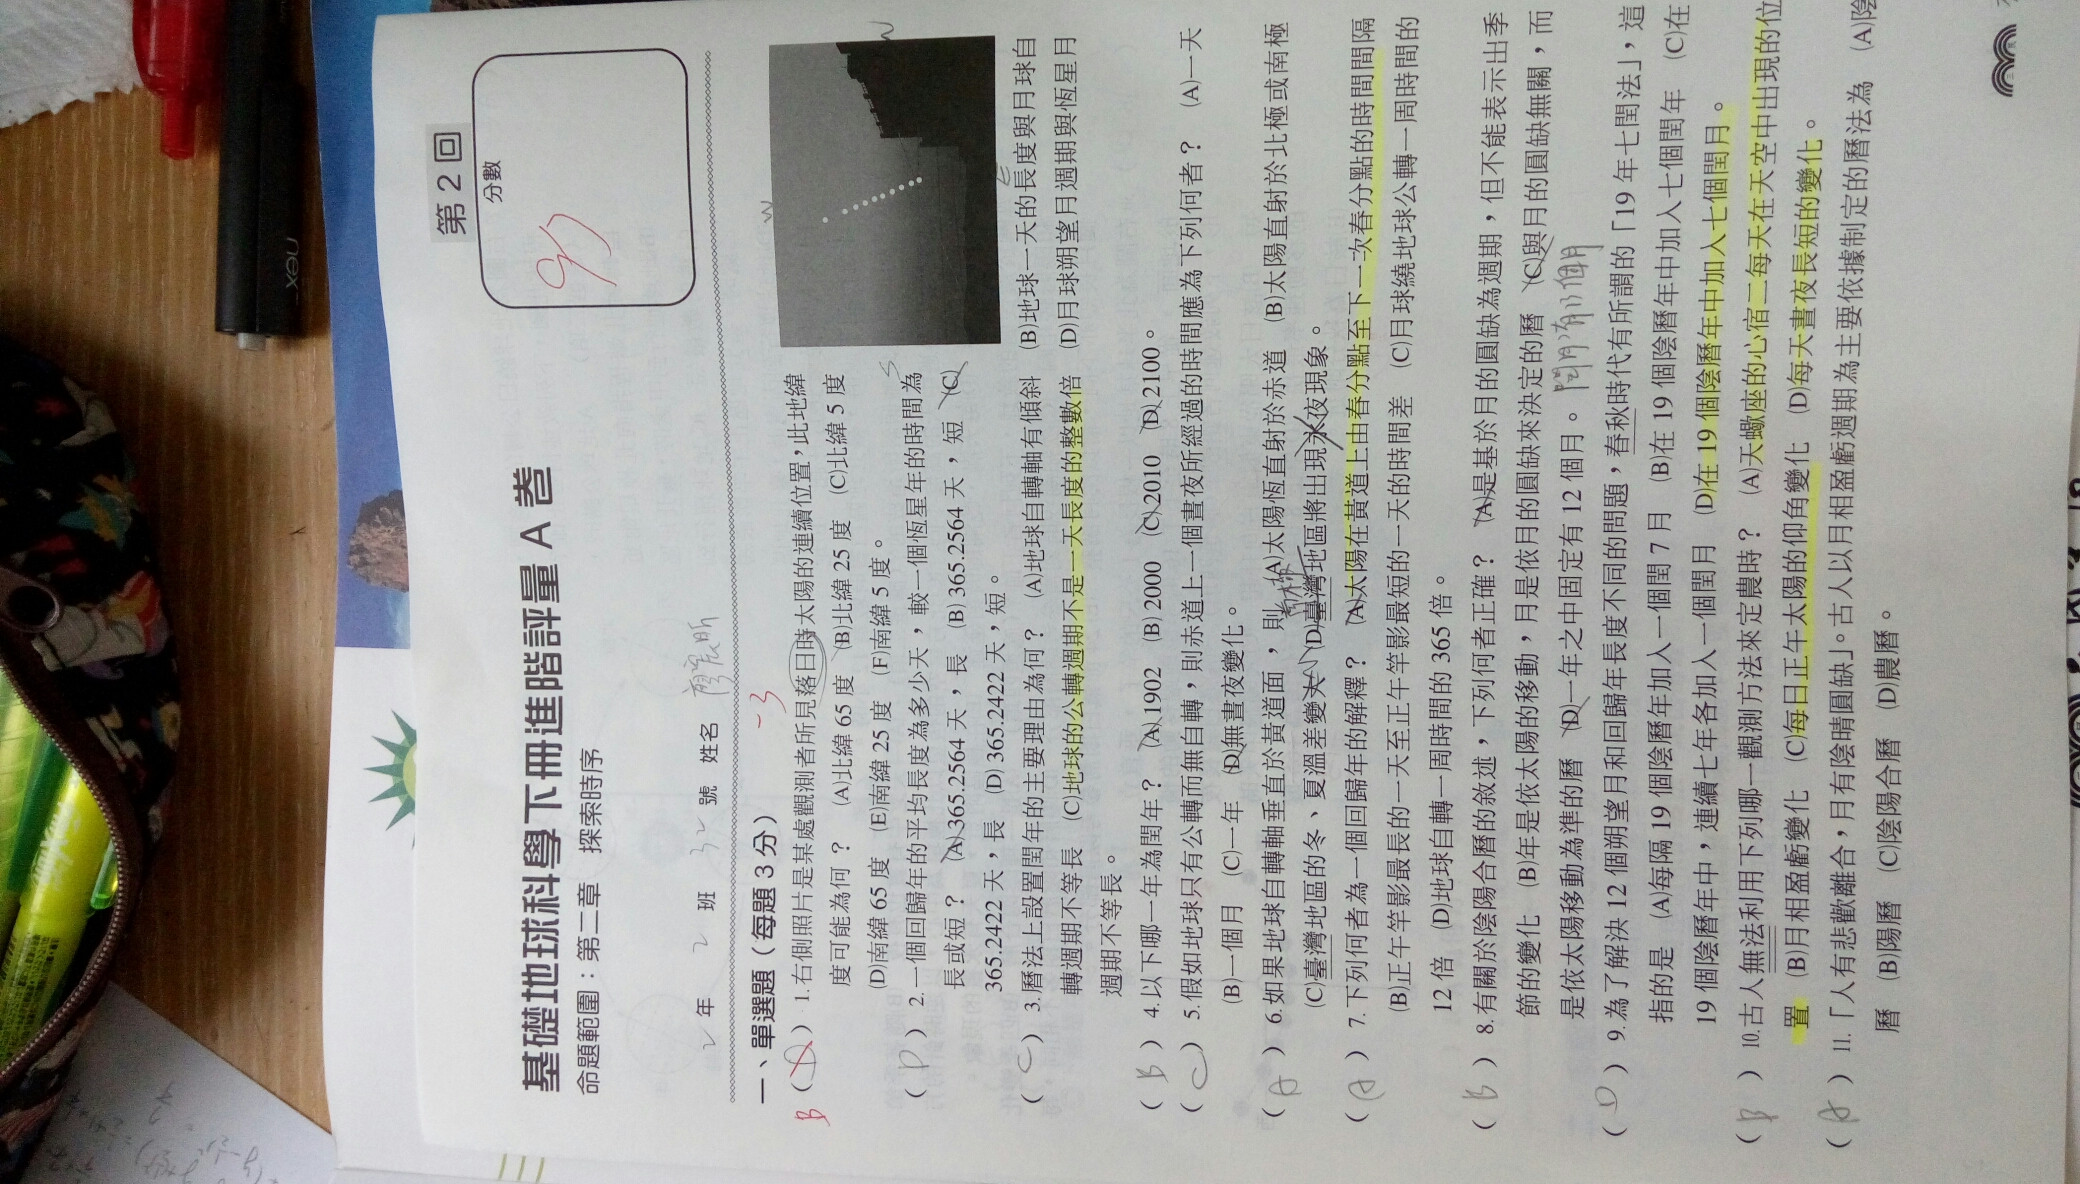 第2回
基礎地球科學下冊進階評量 A 卷
分數
97
命題範圍：第二章 探索時序
2 年 2 班 32 號 姓名
一、單選題（每題 3 分） -3
B (D) 1.右側照片是某處觀測者所見落日時太陽的連續位置，此地緯
度可能為何？ (A)北緯 65 度 (B)北緯 25 度 (C)北緯 5 度
(D)南緯 65 度 (E)南緯 25 度 (F)南緯 5 度。
( D ) 2.一個回歸年的平均長度為多少天，較一個恆星年的時間為
長或短？ (A)365.2564 天，長 (B) 365.2564 天，短 (C)
365.2422 天，長 (D) 365.2422 天，短。
( C ) 3.曆法上設置閏年的主要理由為何？ (A)地球自轉軸有傾斜 (B)地球一天的長度與月球自
轉週期不等長 (C)地球的公轉週期不是一天長度的整數倍 (D)月球朔望月週期與恆星月
週期不等長。
( B ) 4.以下哪一年為閏年？ (A)1902 (B)2000 (C)2010 (D)2100。
( C ) 5.假如地球只有公轉而無自轉，則赤道上一個晝夜所經過的時間應為下列何者？ (A)一天
(B)一個月 (C)一年 (D)無晝夜變化。
( A ) 6.如果地球自轉軸垂直於黃道面，則 (A)太陽恆直射於赤道 (B)太陽直射於北極或南極
(C)臺灣地區的冬、夏溫差變大 (D)臺灣地區將出現永夜現象。
( A ) 7.下列何者為一個回歸年的解釋？ (A)太陽在黃道上由春分點至下一次春分點的時間間隔
(B)正午竿影最長的一天至正午竿影最短的一天的時間差 (C)月球繞地球公轉一周時間的
12 倍 (D)地球自轉一周時間的 365 倍。
( B ) 8.有關於陰陽合曆的敘述，下列何者正確？ (A)是基於月的圓缺為週期，但不能表示出季
節的變化 (B)年是依太陽的移動，月是依月的圓缺來決定的曆 (C)與月的圓缺無關，而
是依太陽移動為準的曆 (D)一年之中固定有 12 個月。 閏月有13個月
( D ) 9.為了解決 12 個朔望月和回歸年長度不同的問題，春秋時代有所謂的「19 年七閏法」，這
指的是 (A)每隔 19 個陰曆年加入一個閏 7 月 (B)在 19 個陰曆年中加入七個閏年 (C)在
19 個陰曆年中，連續七年各加入一個閏月 (D)在 19 個陰曆年中加入七個閏月。
( B ) 10.古人無法利用下列哪一觀測方法來定農時？ (A)天蠍座的心宿二每天在天空中出現的位
置 (B)月相盈虧變化 (C)每日正午太陽的仰角變化 (D)每天晝夜長短的變化。
( A ) 11.「人有悲歡離合，月有陰晴圓缺」。古人以月相盈虧週期為主要依據制定的曆法為 (A)陰
曆 (B)陽曆 (C)陰陽合曆 (D)農曆。